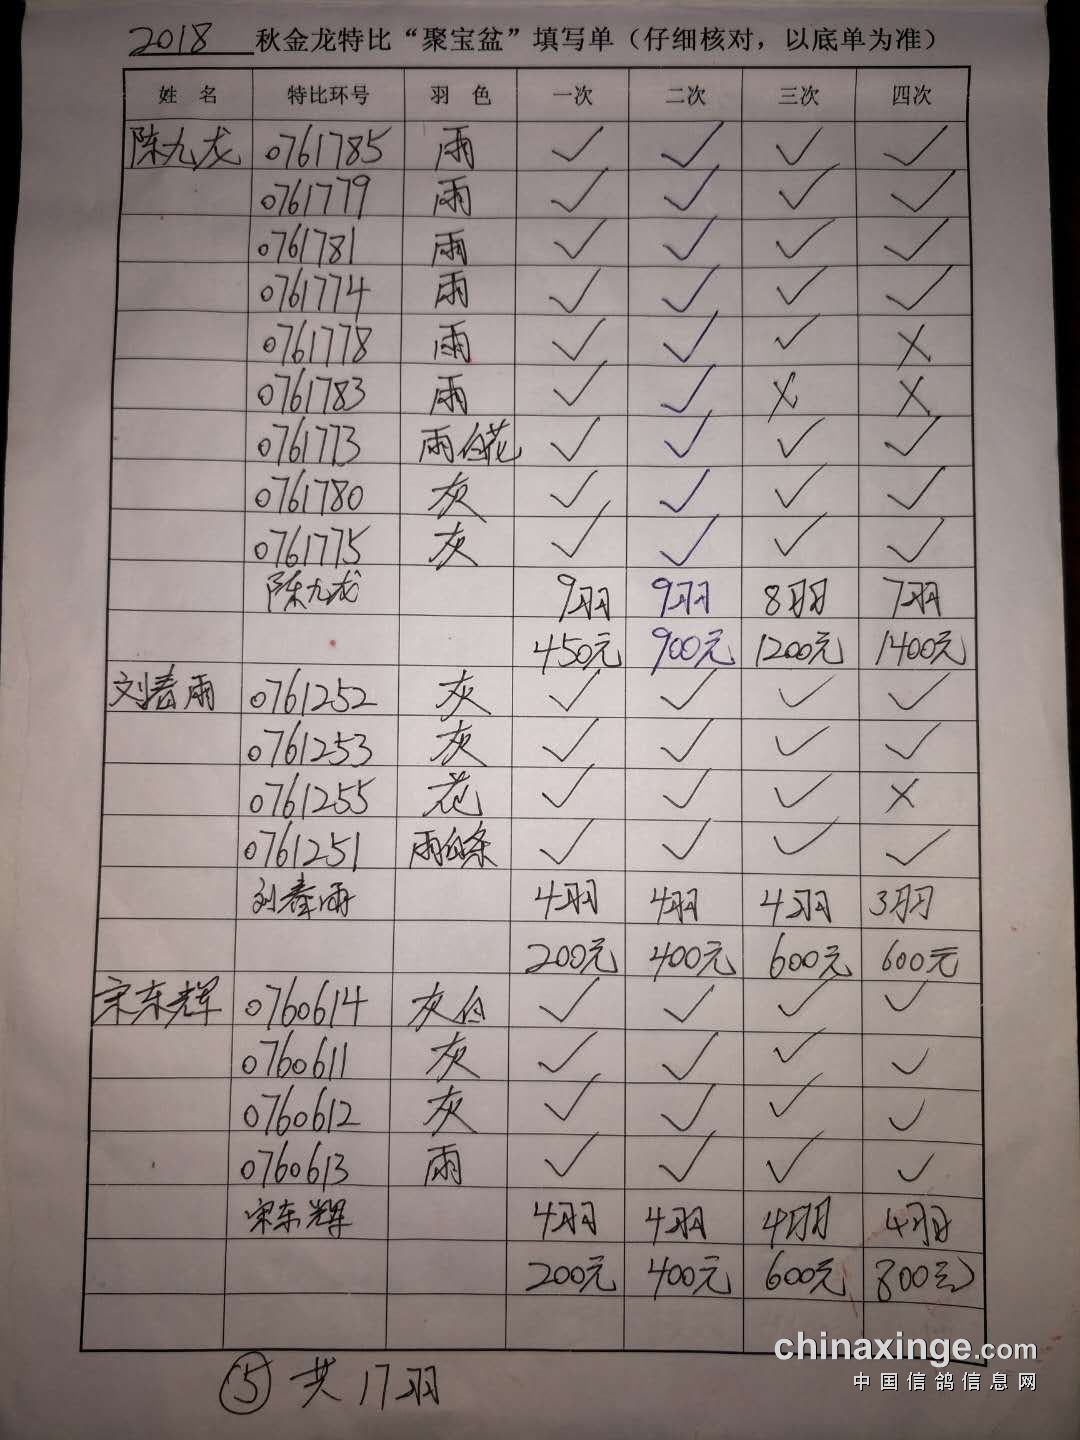 2018 秋金龙特比“聚宝盆”填写单（仔细核对，以底单为准）
姓 名 特比环号 羽 色 一次 二次 三次 四次
陈九龙 0761785 雨 ✓ ✓ ✓ ✓
0761779 雨 ✓ ✓ ✓ ✓
0761781 雨 ✓ ✓ ✓ ✓
0761774 雨 ✓ ✓ ✓ ✓
0761778 雨 ✓ ✓ ✓ ×
0761783 雨 ✓ ✓ × ×
0761773 雨白花 ✓ ✓ ✓ ✓
0761780 灰 ✓ ✓ ✓ ✓
0761775 灰 ✓ ✓ ✓ ✓
陈九龙 9羽 9羽 8羽 7羽
450元 900元 1200元 1400元
刘春雨 0761252 灰 ✓ ✓ ✓ ✓
0761253 灰 ✓ ✓ ✓ ✓
0761255 花 ✓ ✓ ✓ ×
0761251 雨白条 ✓ ✓ ✓ ✓
刘春雨 4羽 4羽 4羽 3羽
200元 400元 600元 600元
宋东辉 0760614 灰白 ✓ ✓ ✓ ✓
0760611 灰 ✓ ✓ ✓ ✓
0760612 灰 ✓ ✓ ✓ ✓
0760613 雨 ✓ ✓ ✓ ✓
宋东辉 4羽 4羽 4羽 4羽
200元 400元 600元 800元
⑤ 共17羽
chinaxinge.com
中国信鸽信息网